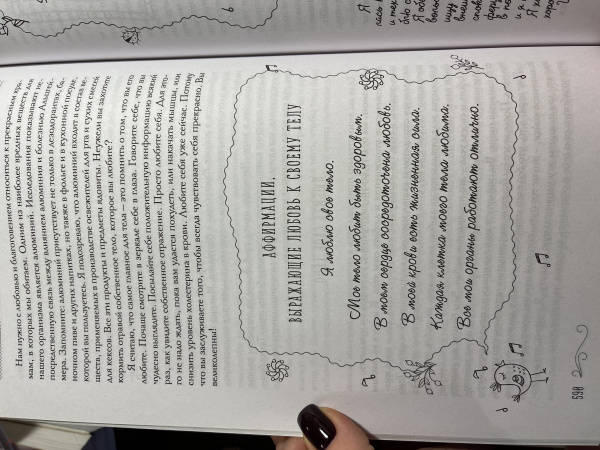 Нам нужно с любовью и благоговением относиться к прекрасным хра-
мам, в которых мы обитаем. Одним из наиболее вредных веществ для
нашего организма является алюминий. Исследования показывают не-
посредственную связь между влиянием алюминия и болезнью Альцгей-
мера. Запомните: алюминий присутствует не только в дезодорантах, ба-
ночном пиве и других напитках, но также в фольге и в кухонной посуде,
которой вы пользуетесь. Я подозреваю, что алюминий входит в состав ве-
ществ, применяемых в производстве освежителей для рта и сухих смесей
для кексов. Все эти продукты и предметы ядовиты. Неужели вы захотите
кормить отравой собственное тело, которое вы любите?
Я считаю, что самое главное для тела – это помнить о том, что вы его
любите. Почаще смотрите в зеркале себе в глаза. Говорите себе, что вы
чудесно выглядите. Посылайте себе положительную информацию всякий
раз, как увидите собственное отражение. Просто любите себя. Для это-
го не надо ждать, пока вам удастся похудеть, или накачать мышцы, или
снизить уровень холестерина в крови. Любите себя уже сейчас. Потому
что вы заслуживаете того, чтобы всегда чувствовать себя прекрасно. Вы
великолепны!
АФФИРМАЦИИ,
ВЫРАЖАЮЩИЕ ЛЮБОВЬ К СВОЕМУ ТЕЛУ
Я люблю свое тело.
Мое тело любит быть здоровым.
В моем сердце сосредоточена любовь.
В моей крови есть жизненная сила.
Каждая клетка моего тела любима.
Все мои органы работают отлично.
590